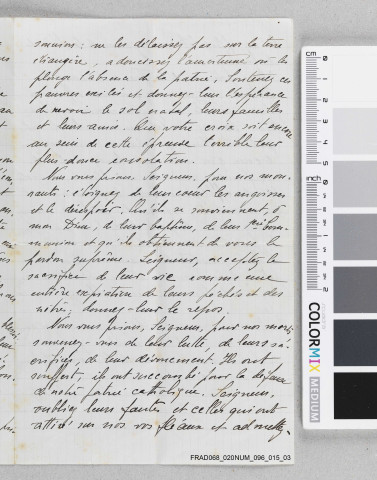 soumission : ne les délaissez pas sur la terre
étrangère, adoucissez l'amertume où les
plonge l'absence de la patrie, soutenez ces
pauvres exilés et donnez-leur l'espérance
de revoir le sol natal, leurs familles
et leurs amis. Que votre croix soit encore
au sein de cette épreuve terrible leur
plus douce consolation.
Nous vous prions, Seigneur, pour nos mou-
rants : éloignez de leur cœur les angoisses
et le désespoir. Qu'ils se souviennent, ô
mon Dieu, de leur baptême, de leur 1ère Com-
munion et qu'ils obtiennent de vous le
pardon suprême. Seigneur, acceptez le
sacrifice de leur vie comme une
entière expiation de leurs péchés et des
nôtres ; donnez-leur le repos.
Nous vous prions, Seigneur, pour nos morts
souvenez-vous de leur lutte, de leurs sa-
crifices, de leur dévouement. Ils ont
souffert, ils ont succombé pour la défense
de notre patrie catholique. Seigneur,
oubliez leurs fautes et celles qui ont
attiré sur nos vos fléaux et admettez
FRAD068_020NUM_096_015_03
cm
inch
COLORMIX
MEDIUM